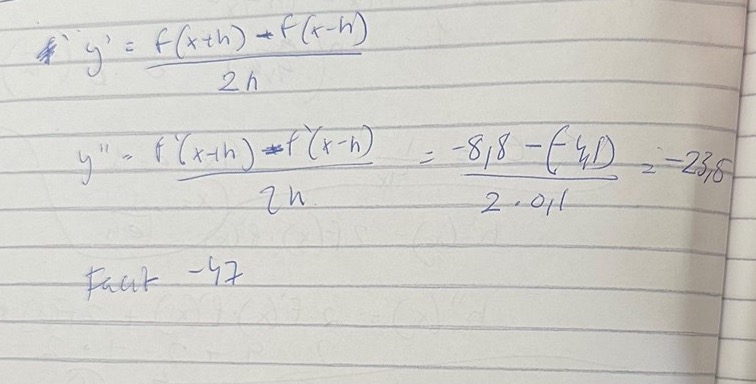 y' = f(x+h) - f(x-h) / 2h
y'' = f'(x+h) - f'(x-h) / 2h = -8,8 - (-4,1) / 2 · 0,1 = -23,5
Facit -47